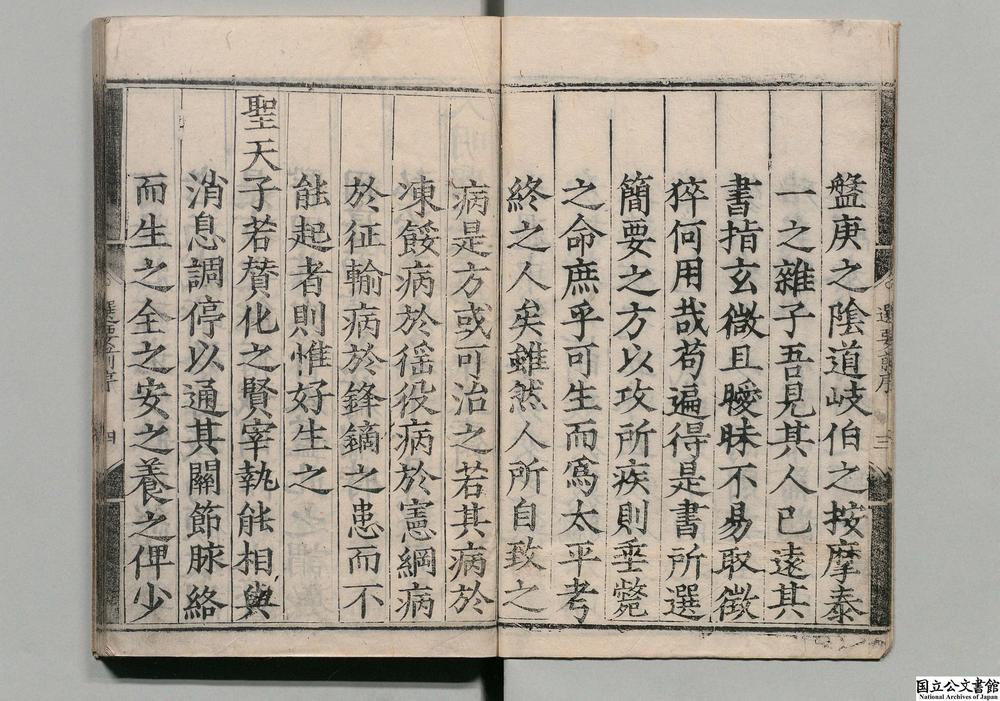 盤庚之陰道岐伯之按摩泰
一之雜子吾見其人已遠其
書指玄微且曖昧不易取徵
猝何用哉苟遍得是書所選
簡要之方以攻所疾則垂斃
之命庶乎可生而爲太平考
終之人矣雖然人所自致之
病是方或可治之若其病於
凍餒病於徭役病於憲綱病
於征輸病於鋒鏑之患而不
能起者則惟好生之
聖天子若贊化之賢宰執能相與
消息調停以通其關節脉絡
而生之全之安之養之俾少
選要前序 三
選要前序 四
国立公文書館
National Archives of Japan